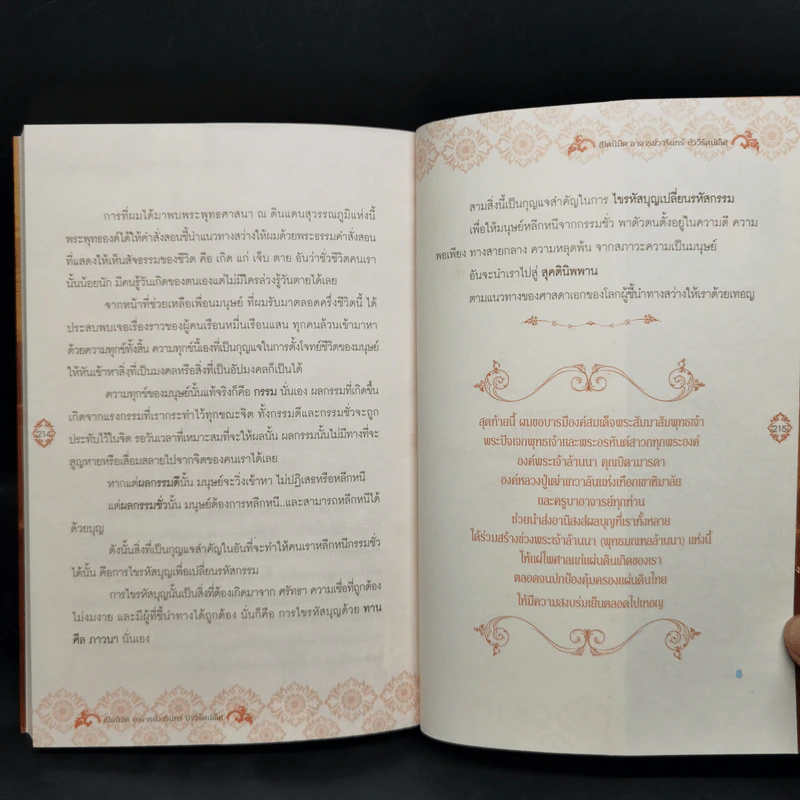 การที่ผมได้มาพบพระพุทธศาสนา ณ ดินแดนสุวรรณภูมิแห่งนี้
พระพุทธองค์ได้ให้คำสั่งสอนชี้นำแนวทางสว่างให้ผมด้วยพระธรรมคำสั่งสอน
ที่แสดงให้เห็นสัจธรรมของชีวิต คือ เกิด แก่ เจ็บ ตาย อันว่าชั่วชีวิตคนเรา
นั้นน้อยนัก มีคนรู้วันเกิดของตนเองแต่ไม่มีใครล่วงรู้วันตายได้เลย
จากหน้าที่ช่วยเหลือเพื่อนมนุษย์ ที่ผมรับมาตลอดครึ่งชีวิตนี้ ได้
ประสบพบเจอเรื่องราวของผู้คนเรือนหมื่นเรือนแสน ทุกคนล้วนเข้ามาหา
ด้วยความทุกข์ทั้งสิ้น ความทุกข์นี้เองที่เป็นกุญแจในการตั้งโจทย์ชีวิตของมนุษย์
ให้หันเข้าหาสิ่งที่เป็นมงคลหรือสิ่งที่เป็นอัปมงคลก็เป็นได้
ความทุกข์ของมนุษย์นั้นแท้จริงก็คือ กรรม นั่นเอง ผลกรรมที่เกิดขึ้น
เกิดจากแรงกรรมที่เรากระทำไว้ทุกขณะจิต ทั้งกรรมดีและกรรมชั่วจะถูก
ประทับไว้ในจิต รอวันเวลาที่เหมาะสมที่จะให้ผลนั้น ผลกรรมนั้นไม่มีทางที่จะ
สูญหายหรือเสื่อมสลายไปจากจิตของคนเราได้เลย
หากแต่ผลกรรมดีนั้น มนุษย์จะวิ่งเข้าหา ไม่ปฏิเสธหรือหลีกหนี
แต่ผลกรรมชั่วนั้น มนุษย์ต้องการหลีกหนี..และสามารถหลีกหนีได้
ด้วยบุญ
ดังนั้นสิ่งที่เป็นกุญแจสำคัญในอันที่จะทำให้คนเราหลีกหนีกรรมชั่ว
ได้นั้น คือการไขรหัสบุญเพื่อเปลี่ยนรหัสกรรม
การไขรหัสบุญนั้นเป็นสิ่งที่ต้องเกิดมาจาก ศรัทธา ความเชื่อที่ถูกต้อง
ไม่งมงาย และมีผู้ที่ชี้นำทางได้ถูกต้อง นั่นก็คือ การไขรหัสบุญด้วย ทาน
ศีล ภาวนา นั่นเอง
214
เปิดนิมิต อาจารย์วารินทร์ บัววิรัตน์เลิศ
เปิดนิมิต อาจารย์วารินทร์ บัววิรัตน์เลิศ
สามสิ่งนี้เป็นกุญแจสำคัญในการ ไขรหัสบุญเปลี่ยนรหัสกรรม
เพื่อให้มนุษย์หลีกหนีจากกรรมชั่ว พาตัวตนตั้งอยู่ในความดี ความ
พอเพียง ทางสายกลาง ความหลุดพ้น จากสภาวะความเป็นมนุษย์
อันจะนำเราไปสู่ สุคตินิพพาน
ตามแนวทางของศาสดาเอกของโลกผู้ชี้นำทางสว่างให้เราด้วยเทอญ
สุดท้ายนี้ ผมขอบารมีองค์สมเด็จพระสัมมาสัมพุทธเจ้า
พระปัจเจกพุทธเจ้าและพระอรหันต์สาวกทุกพระองค์
องค์พระเจ้าล้านนา คุณบิดามารดา
องค์หลวงปู่เฒ่าเกวาลันแห่งเทือกเขาหิมาลัย
และครูบาอาจารย์ทุกท่าน
ช่วยนำส่งอานิสงส์ผลบุญที่เราทั้งหลาย
ได้ร่วมสร้างช่วงพระเจ้าล้านนา (พุทธมณฑลล้านนา) แห่งนี้
ให้แผ่ไพศาลแก่แผ่นดินเกิดของเรา
ตลอดจนปกป้องคุ้มครองแผ่นดินไทย
ให้มีความสงบร่มเย็นตลอดไปเทอญ
215